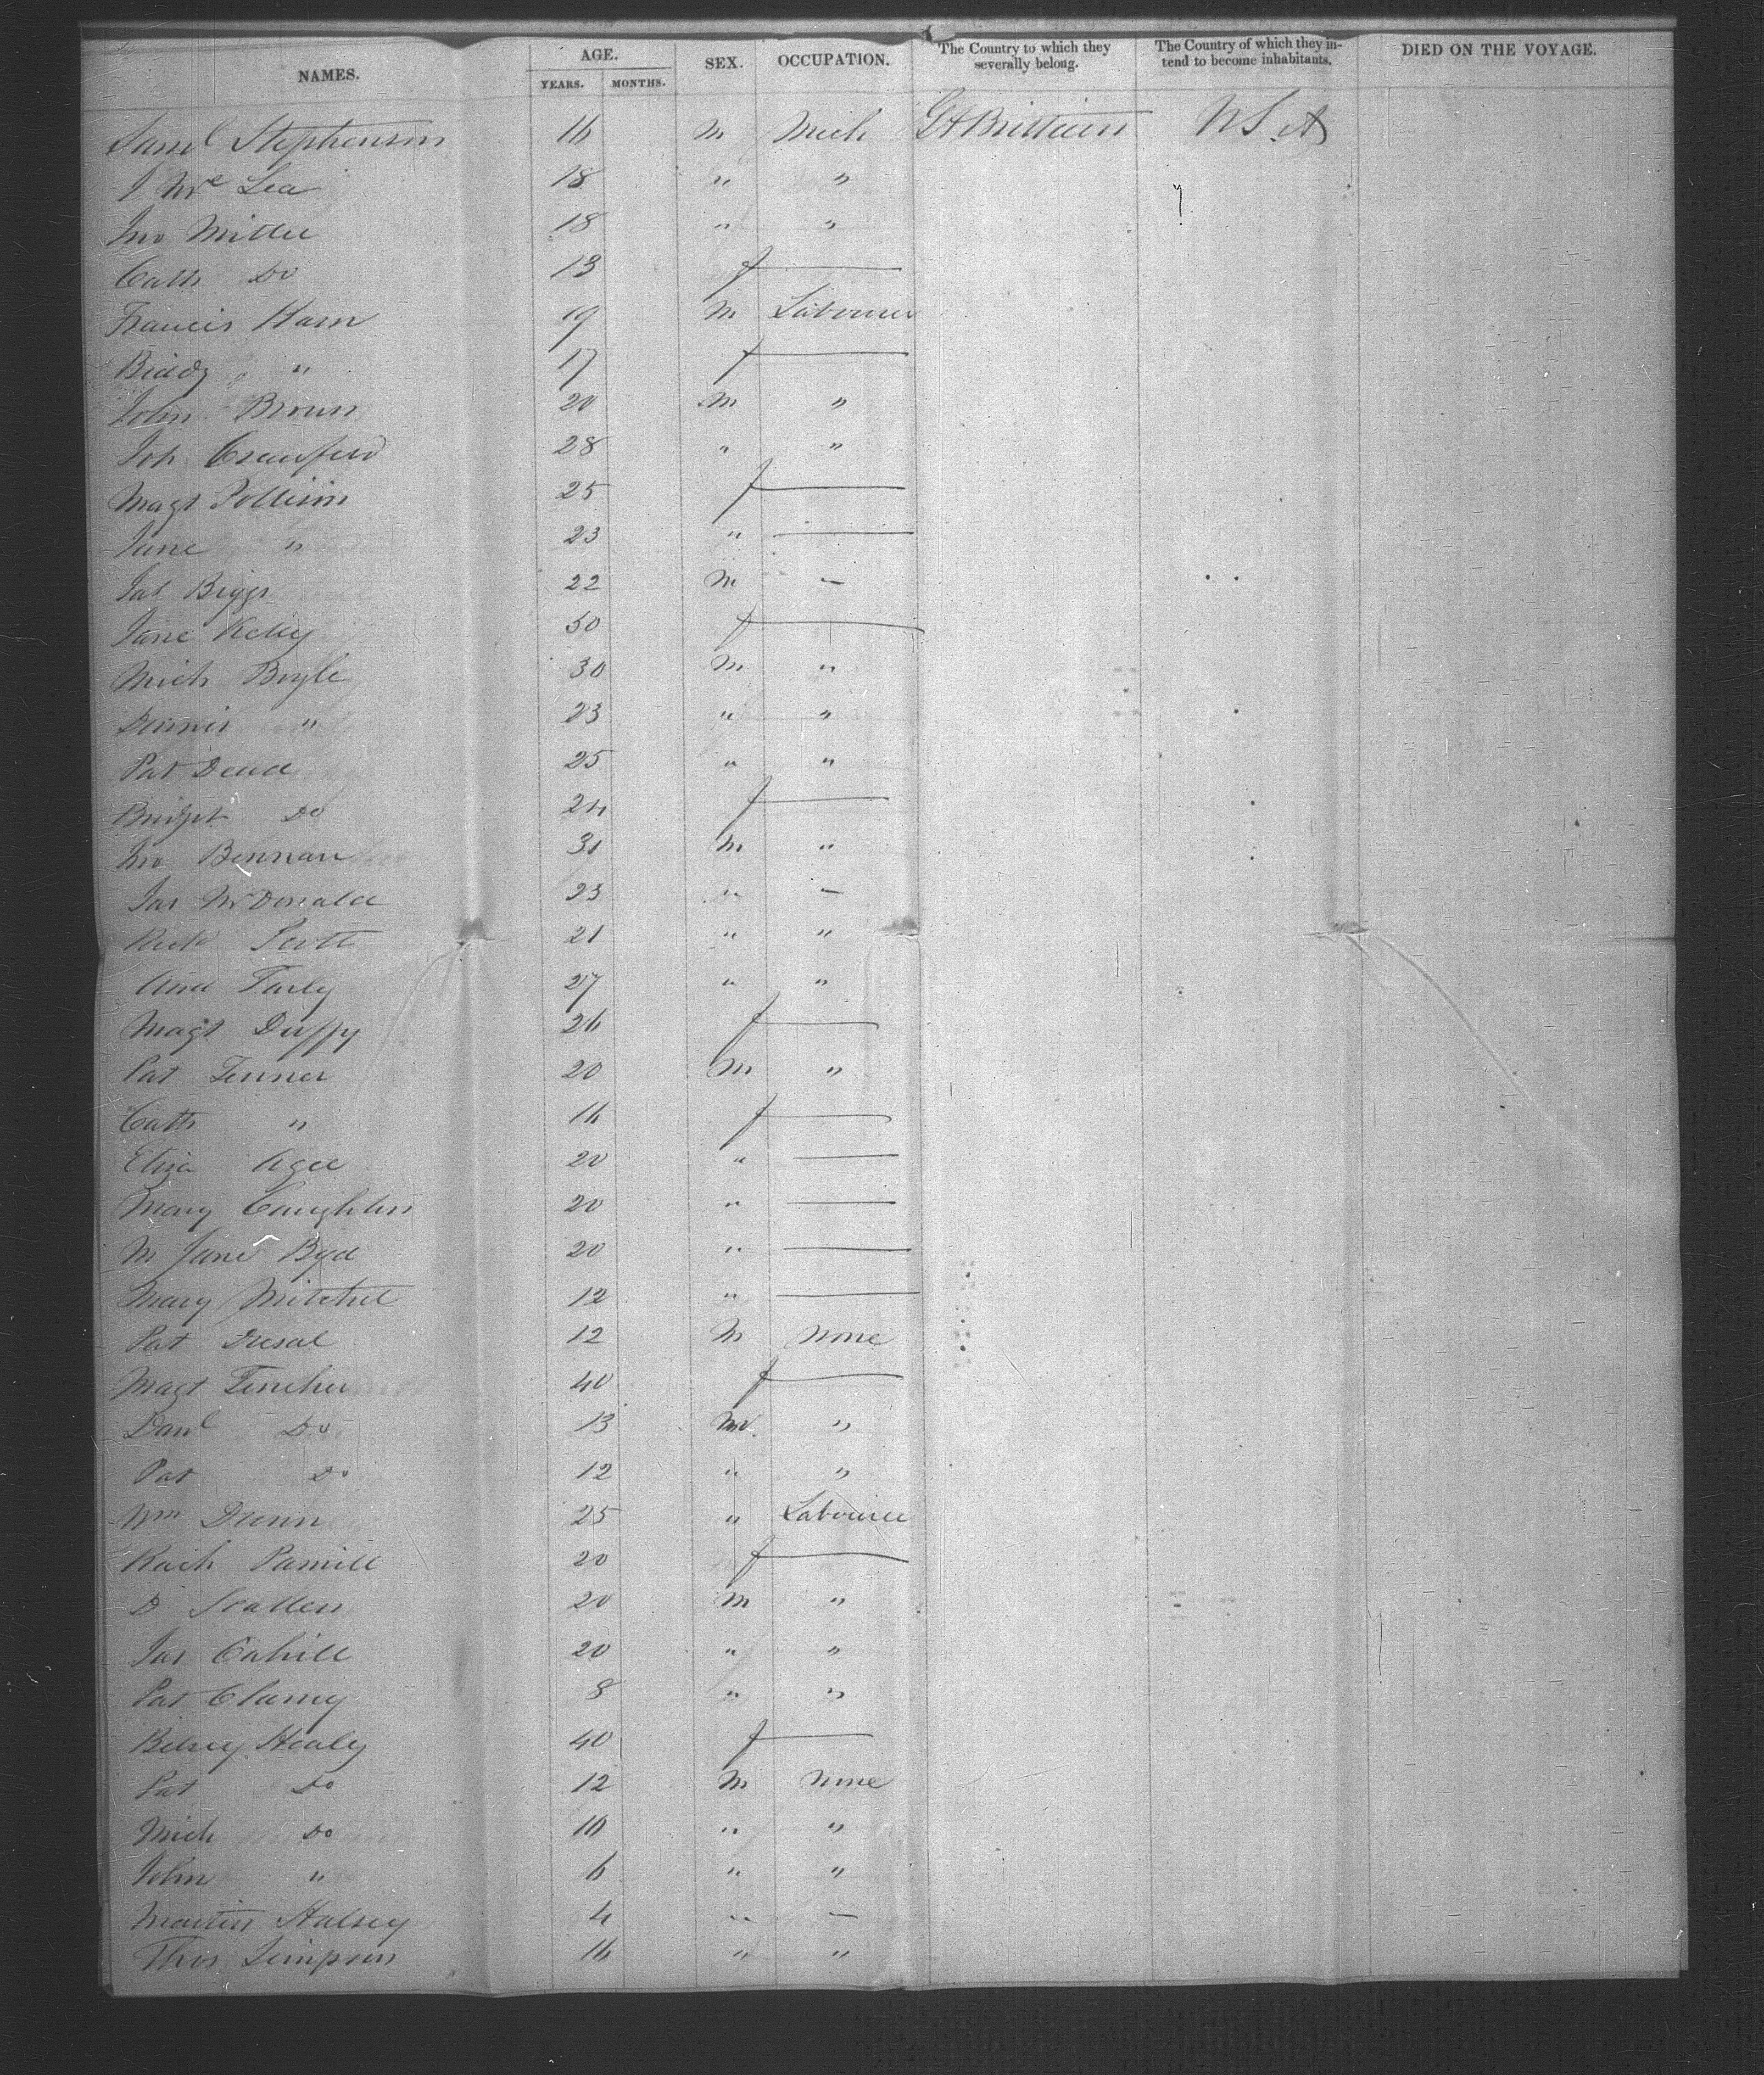 NAMES. AGE. SEX. OCCUPATION. The Country to which they severally belong. The Country of which they intend to become inhabitants. DIED ON THE VOYAGE.
YEARS. MONTHS.
Saml Stephenson 16 M Mech Gt Brittain U S A
J Mc Lea 18 " "
Jno Miller 18 " "
Cath Do 13 f —
Francis Ham 19 M Labourer
Biddy " 17 f —
John Brown 20 M "
Joh Crawford 28 " "
Magt 25 f —
Jane " 23 " —
Jas Biggs 22 M —
Jane Kelly 50 f —
Mich Boyle 30 M "
Dennis " 23 " "
Pat 25 " "
Bridget Do 24 f —
Jno Bennan 31 M "
Jas McDonald 23 " —
Rich Scott 21 " "
27 " "
Magt Duffy 26 f —
Pat Fenner 20 M "
Cath " 16 f —
Eliza 20 " —
Mary Coughlin 20 " —
M Jane Byd 20 " —
Mary Mitchel 12 " —
Pat 12 M None
Magt 40 f —
Danl Do 13 M "
Pat Do 12 " "
Wm Dunn 25 " Labourer
Rach 20 f —
D Scallen 20 M "
Jas Cahill 20 " "
Pat Clancy 8 " "
Betsey Healy 40 f —
Pat Do 12 M None
Mich Do 10 " "
John " 6 " "
Martin Halsey 4 " —
Thos Simpson 16 " "